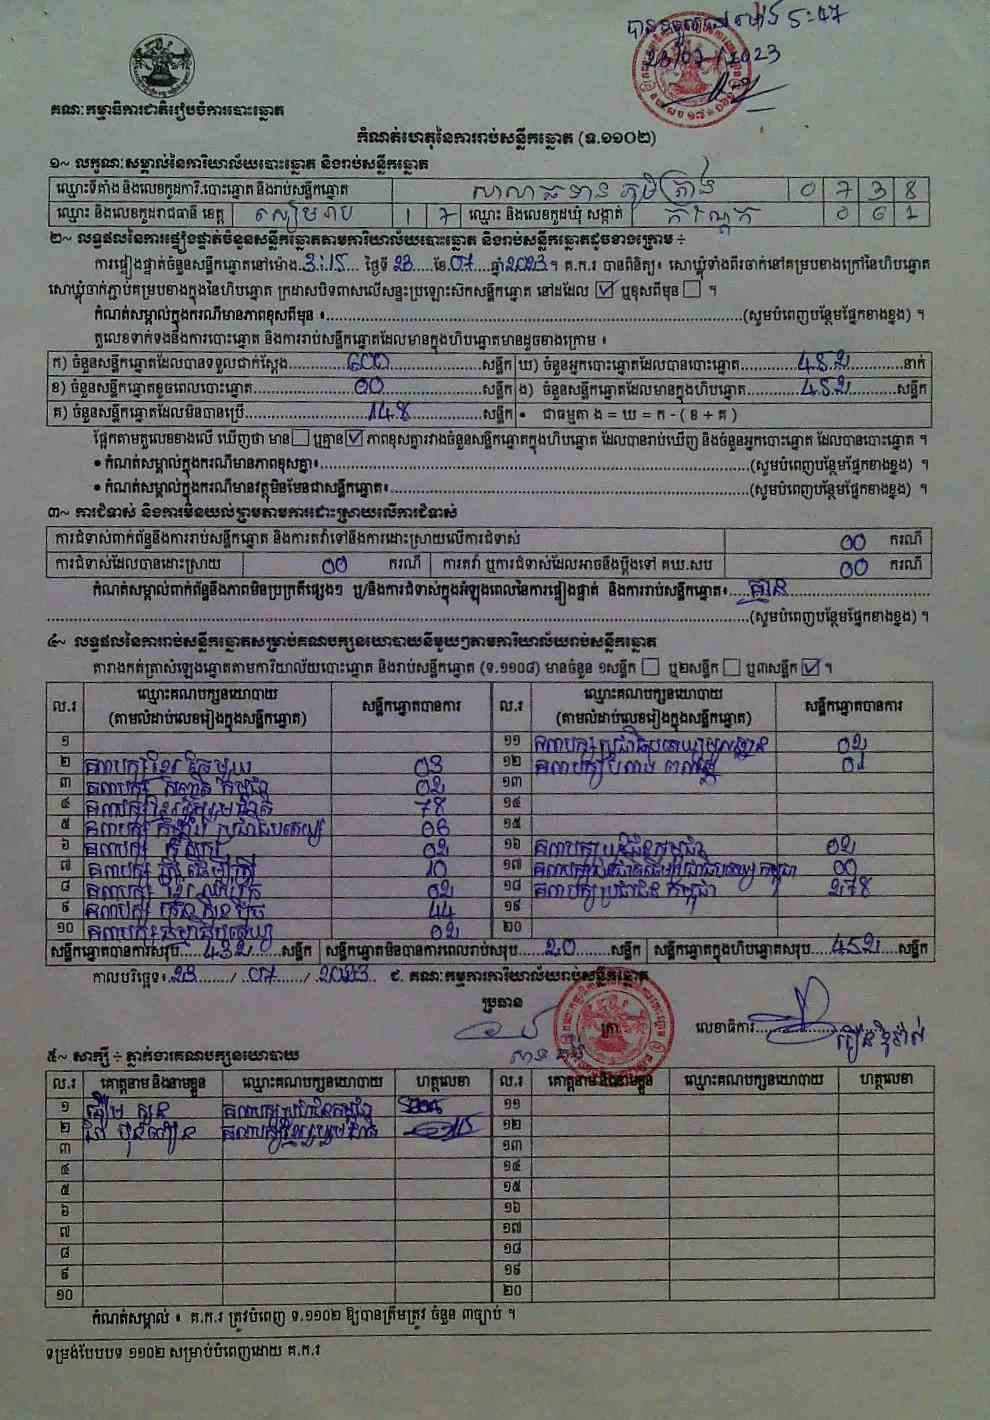 បានទទួលនៅម៉ោង 5:47
23/07/2023
គណៈកម្មាធិការជាតិរៀបចំការបោះឆ្នោត
កំណត់ហេតុនៃការរាប់សន្លឹកឆ្នោត (ទ.១១០២)
១~ លក្ខណៈសម្គាល់នៃការិយាល័យបោះឆ្នោត និងរាប់សន្លឹកឆ្នោត
ឈ្មោះទីតាំង និងលេខកូដការិ.បោះឆ្នោត និងរាប់សន្លឹកឆ្នោត សាលាធម្មទាន ភូមិត្រាង 0 7 3 8
ឈ្មោះ និងលេខកូដរាជធានី ខេត្ត សៀមរាប 1 7 ឈ្មោះ និងលេខកូដឃុំ សង្កាត់ 0 6 1
២~ លទ្ធផលនៃការផ្ទៀងផ្ទាត់ចំនួនសន្លឹកឆ្នោតតាមការិយាល័យបោះឆ្នោត និងរាប់សន្លឹកឆ្នោតដូចខាងក្រោម ÷
ការផ្ទៀងផ្ទាត់ចំនួនសន្លឹកឆ្នោតនៅម៉ោង 3:15 ថ្ងៃទី 23 ខែ 07 ឆ្នាំ 2023 ។ គ.ក.រ បានពិនិត្យ៖ សោឃ្លុំទាំងពីរចាក់នៅគម្របខាងក្រៅនៃហិបឆ្នោត
សោឃ្លុំចាក់ភ្ជាប់គម្របខាងក្នុងនៃហិបឆ្នោត ក្រដាសបិទពាសលើសន្ទះប្រឡោះស៊កសន្លឹកឆ្នោត នៅដដែល ☑ ឬខុសពីមុន ☐ ។
កំណត់សម្គាល់ក្នុងករណីមានភាពខុសពីមុន ៖ (សូមបំពេញបន្ថែមផ្នែកខាងខ្នង) ។
តួលេខទាក់ទងនឹងការបោះឆ្នោត និងការរាប់សន្លឹកឆ្នោតដែលមានក្នុងហិបឆ្នោតមានដូចខាងក្រោម ៖
ក) ចំនួនសន្លឹកឆ្នោតដែលបានទទួលជាក់ស្តែង 600 សន្លឹក ឃ) ចំនួនអ្នកបោះឆ្នោតដែលបានបោះឆ្នោត 452 នាក់
ខ) ចំនួនសន្លឹកឆ្នោតខូចពេលបោះឆ្នោត 00 សន្លឹក ង) ចំនួនសន្លឹកឆ្នោតដែលមានក្នុងហិបឆ្នោត 452 សន្លឹក
គ) ចំនួនសន្លឹកឆ្នោតដែលមិនបានប្រើ 148 សន្លឹក • ជាធម្មតា ង = ឃ = ក - ( ខ + គ )
ផ្អែកតាមតួលេខខាងលើ ឃើញថា មាន ☐ ឬគ្មាន ☑ ភាពខុសគ្នារវាងចំនួនសន្លឹកឆ្នោតក្នុងហិបឆ្នោត ដែលបានរាប់ឃើញ និងចំនួនអ្នកបោះឆ្នោត ដែលបានបោះឆ្នោត ។
• កំណត់សម្គាល់ក្នុងករណីមានភាពខុសគ្នា៖ (សូមបំពេញបន្ថែមផ្នែកខាងខ្នង) ។
• កំណត់សម្គាល់ក្នុងករណីមានវត្ថុមិនមែនជាសន្លឹកឆ្នោត៖ (សូមបំពេញបន្ថែមផ្នែកខាងខ្នង) ។
៣~ ការជំទាស់ និងការមិនយល់ព្រមតាមការដោះស្រាយលើការជំទាស់
ការជំទាស់ពាក់ព័ន្ធនឹងការរាប់សន្លឹកឆ្នោត និងការតវ៉ាទៅនឹងការដោះស្រាយលើការជំទាស់ 00 ករណី
ការជំទាស់ដែលបានដោះស្រាយ 00 ករណី ការតវ៉ា ឬការជំទាស់ដែលអាចនឹងប្តឹងទៅ គឃ.សប 00 ករណី
កំណត់សម្គាល់ពាក់ព័ន្ធនឹងភាពមិនប្រក្រតីផ្សេងៗ ឬ/និងការជំទាស់ក្នុងអំឡុងពេលនៃការផ្ទៀងផ្ទាត់ និងការរាប់សន្លឹកឆ្នោត៖ គ្មាន
(សូមបំពេញបន្ថែមផ្នែកខាងខ្នង) ។
៤~ លទ្ធផលនៃការរាប់សន្លឹកឆ្នោតសម្រាប់គណបក្សនយោបាយនីមួយៗតាមការិយាល័យរាប់សន្លឹកឆ្នោត
តារាងកត់ត្រាសំឡេងឆ្នោតតាមការិយាល័យបោះឆ្នោត និងរាប់សន្លឹកឆ្នោត (ទ.១១០៨) មានចំនួន ១សន្លឹក ☐ ឬ២សន្លឹក ☐ ឬ៣សន្លឹក ☑ ។
ល.រ ឈ្មោះគណបក្សនយោបាយ (តាមលំដាប់លេខរៀងក្នុងសន្លឹកឆ្នោត) សន្លឹកឆ្នោតបានការ ល.រ ឈ្មោះគណបក្សនយោបាយ (តាមលំដាប់លេខរៀងក្នុងសន្លឹកឆ្នោត) សន្លឹកឆ្នោតបានការ
១ ១១ គណបក្សប្រជាធិបតេយ្យមូលដ្ឋាន 02
២ គណបក្សខ្មែរតែមួយ 03 ១២ គណបក្ស 01
៣ គណបក្ស កម្ពុជា 02 ១៣
៤ គណបក្សខ្មែររួបរួមជាតិ 78 ១៤
៥ គណបក្ស ប្រជាធិបតេយ្យ 06 ១៥
៦ គណបក្ស កសិករ 02 ១៦ គណបក្សយុវជនកម្ពុជា 02
៧ គណបក្ស ស្ត្រីដើម្បីស្ត្រី 10 ១៧ គណបក្ស ប្រជាធិបតេយ្យ កម្ពុជា 00
៨ គណបក្ស ខ្មែរ 02 ១៨ គណបក្សប្រជាជន កម្ពុជា 278
៩ គណបក្ស ហ្វ៊ុនស៊ិនប៉ិច 44 ១៩
១០ គណបក្សធម្មាធិបតេយ្យ 02 ២០
សន្លឹកឆ្នោតបានការសរុប 432 សន្លឹក សន្លឹកឆ្នោតមិនបានការពេលរាប់សរុប 20 សន្លឹក សន្លឹកឆ្នោតក្នុងហិបឆ្នោតសរុប 452 សន្លឹក
កាលបរិច្ឆេទ៖ 23 / 07 / 2023 ជ. គណៈកម្មការការិយាល័យរាប់សន្លឹកឆ្នោត
ប្រធាន
លេខាធិការ
៥~ សាក្សី ÷ ភ្នាក់ងារគណបក្សនយោបាយ
ល.រ គោត្តនាម និងនាមខ្លួន ឈ្មោះគណបក្សនយោបាយ ហត្ថលេខា ល.រ គោត្តនាម និងនាមខ្លួន ឈ្មោះគណបក្សនយោបាយ ហត្ថលេខា
១ គណបក្សប្រជាជនកម្ពុជា ១១
២ គណបក្សខ្មែររួបរួមជាតិ ១២
៣ ១៣
៤ ១៤
៥ ១៥
៦ ១៦
៧ ១៧
៨ ១៨
៩ ១៩
១០ ២០
កំណត់សម្គាល់ ៖ គ.ក.រ ត្រូវបំពេញ ទ.១១០២ ឱ្យបានត្រឹមត្រូវ ចំនួន ៣ច្បាប់ ។
ទម្រង់បែបបទ ១១០២ សម្រាប់បំពេញដោយ គ.ក.រ